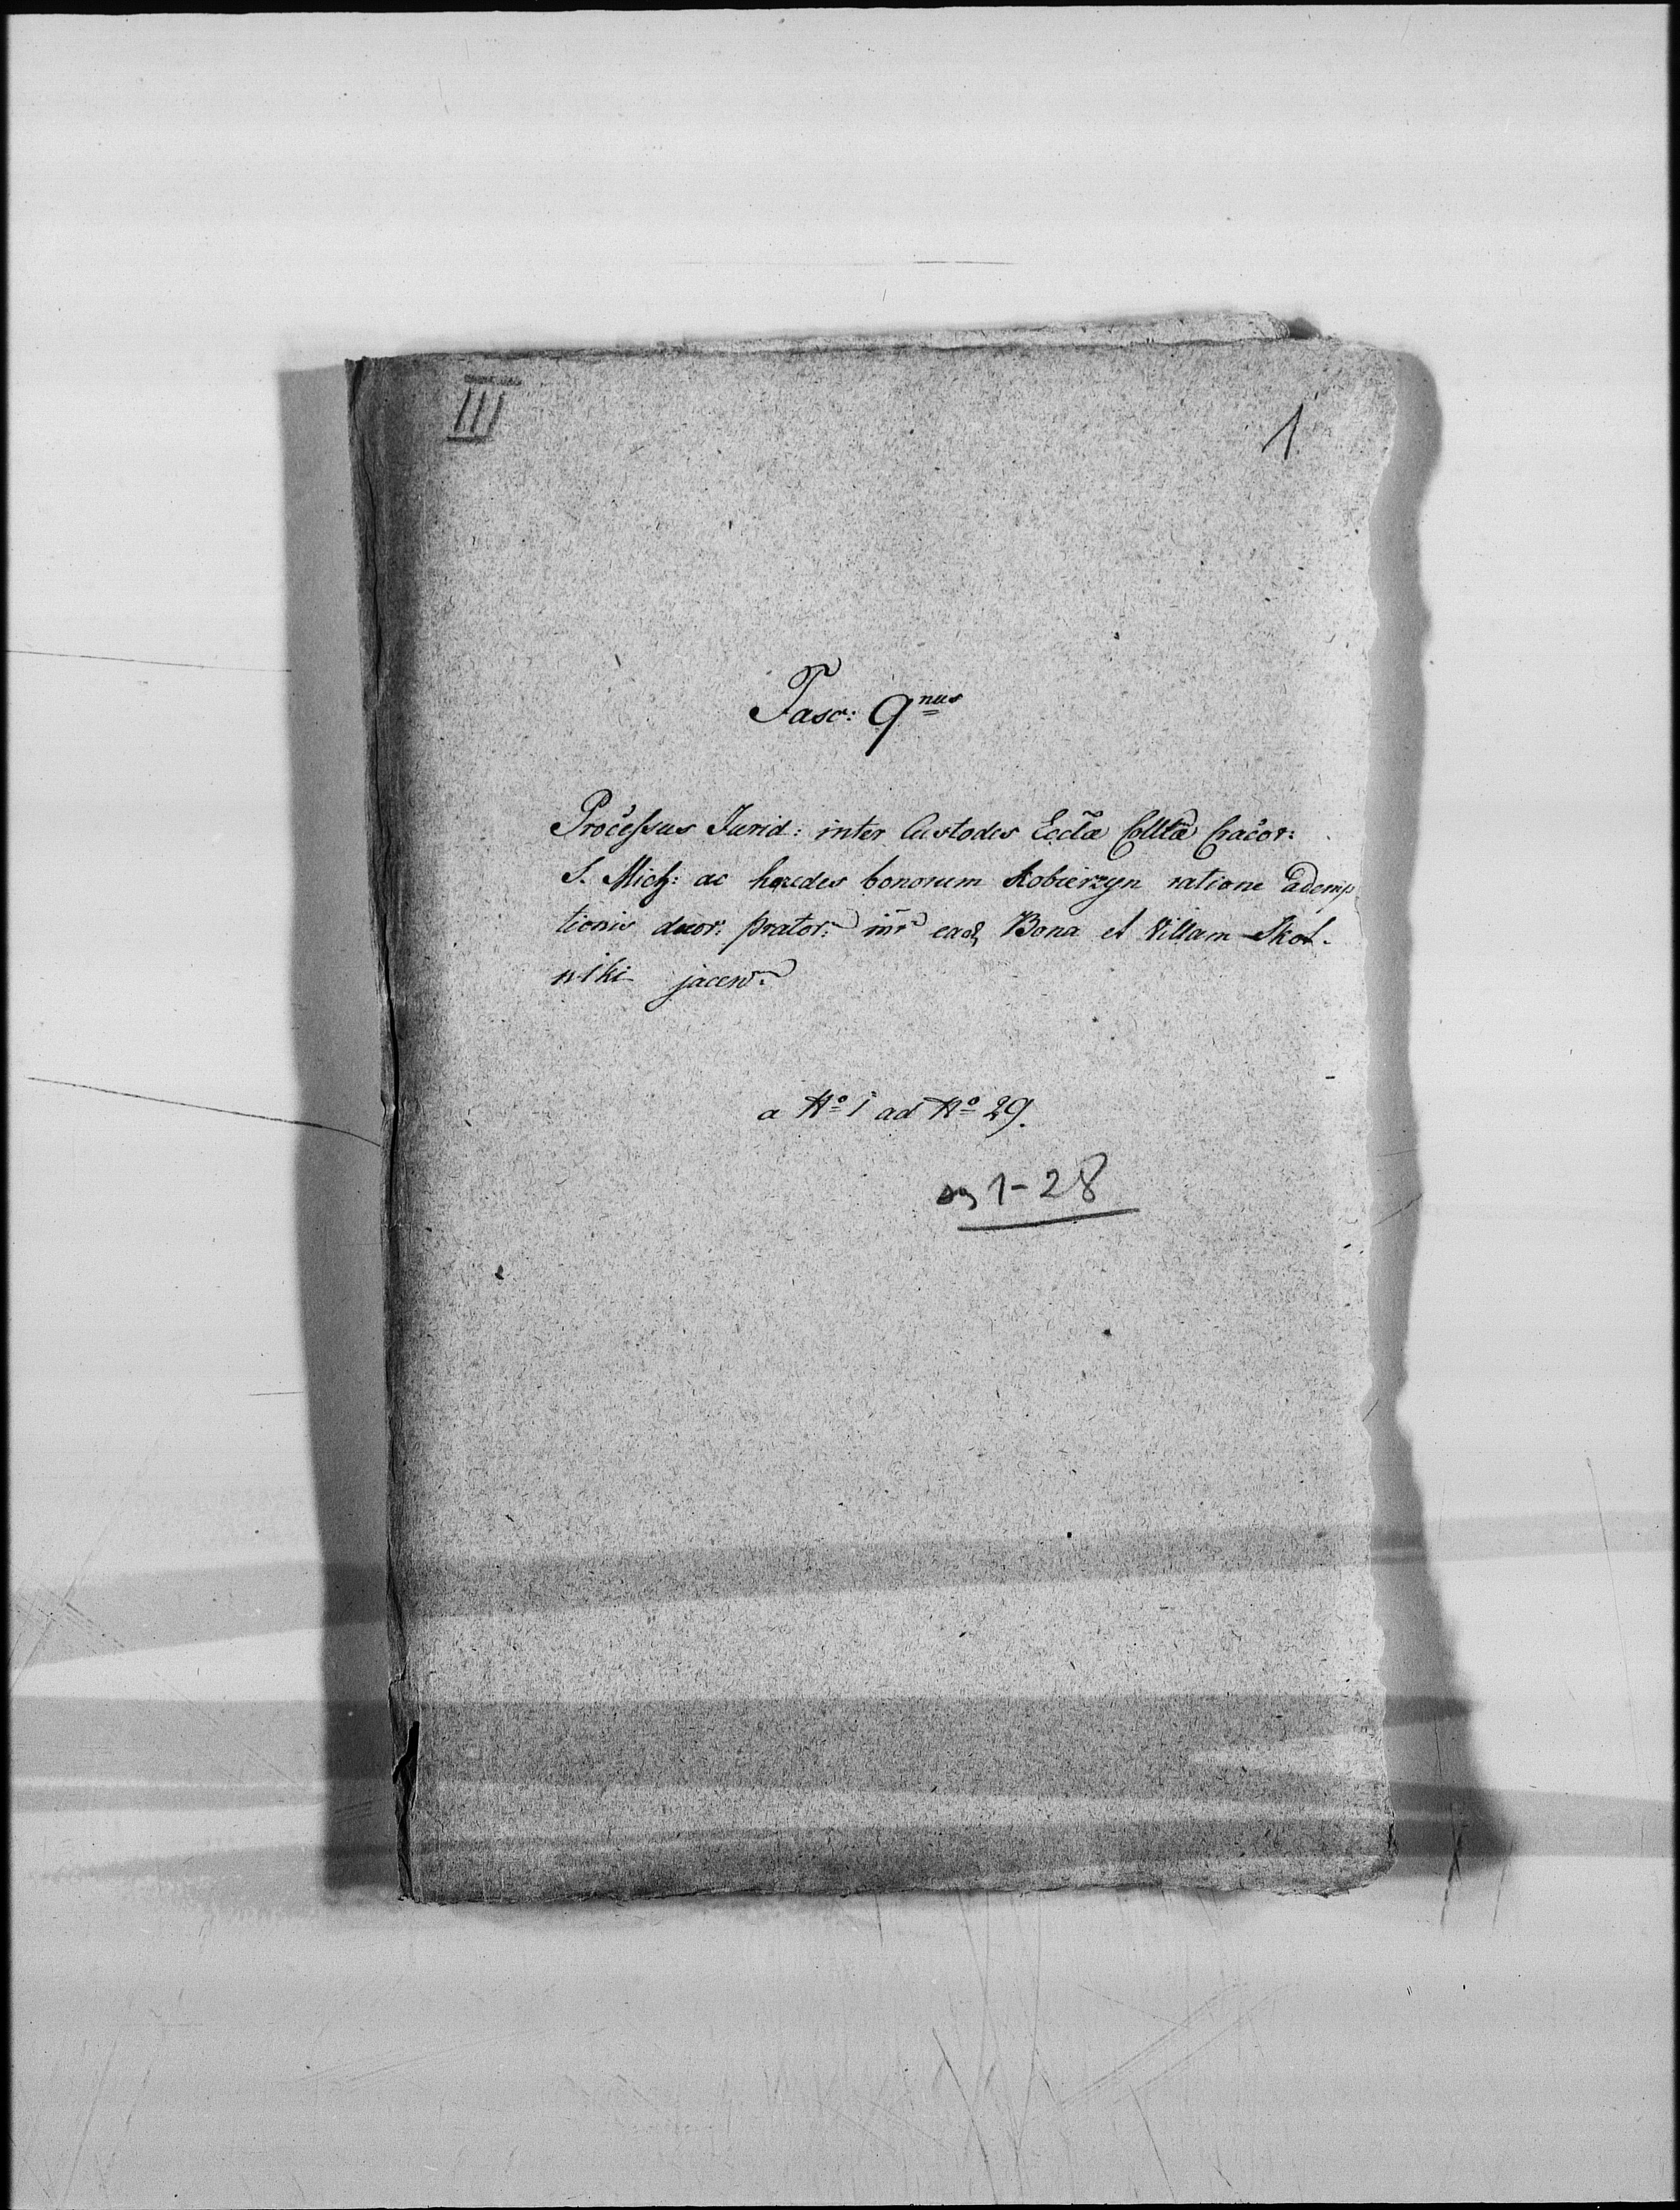 III
1
Fasc: 9nus
Processus Jurid: inter Custodes Ecclae Colltae Cracov:
S. Mich: ac haeredes bonorum Kobierzyn ratione ademp
tionis duor: prator: intr ead Bona et Villam Skot-
niki jacen:
a No 1 ad No 29.
1-28